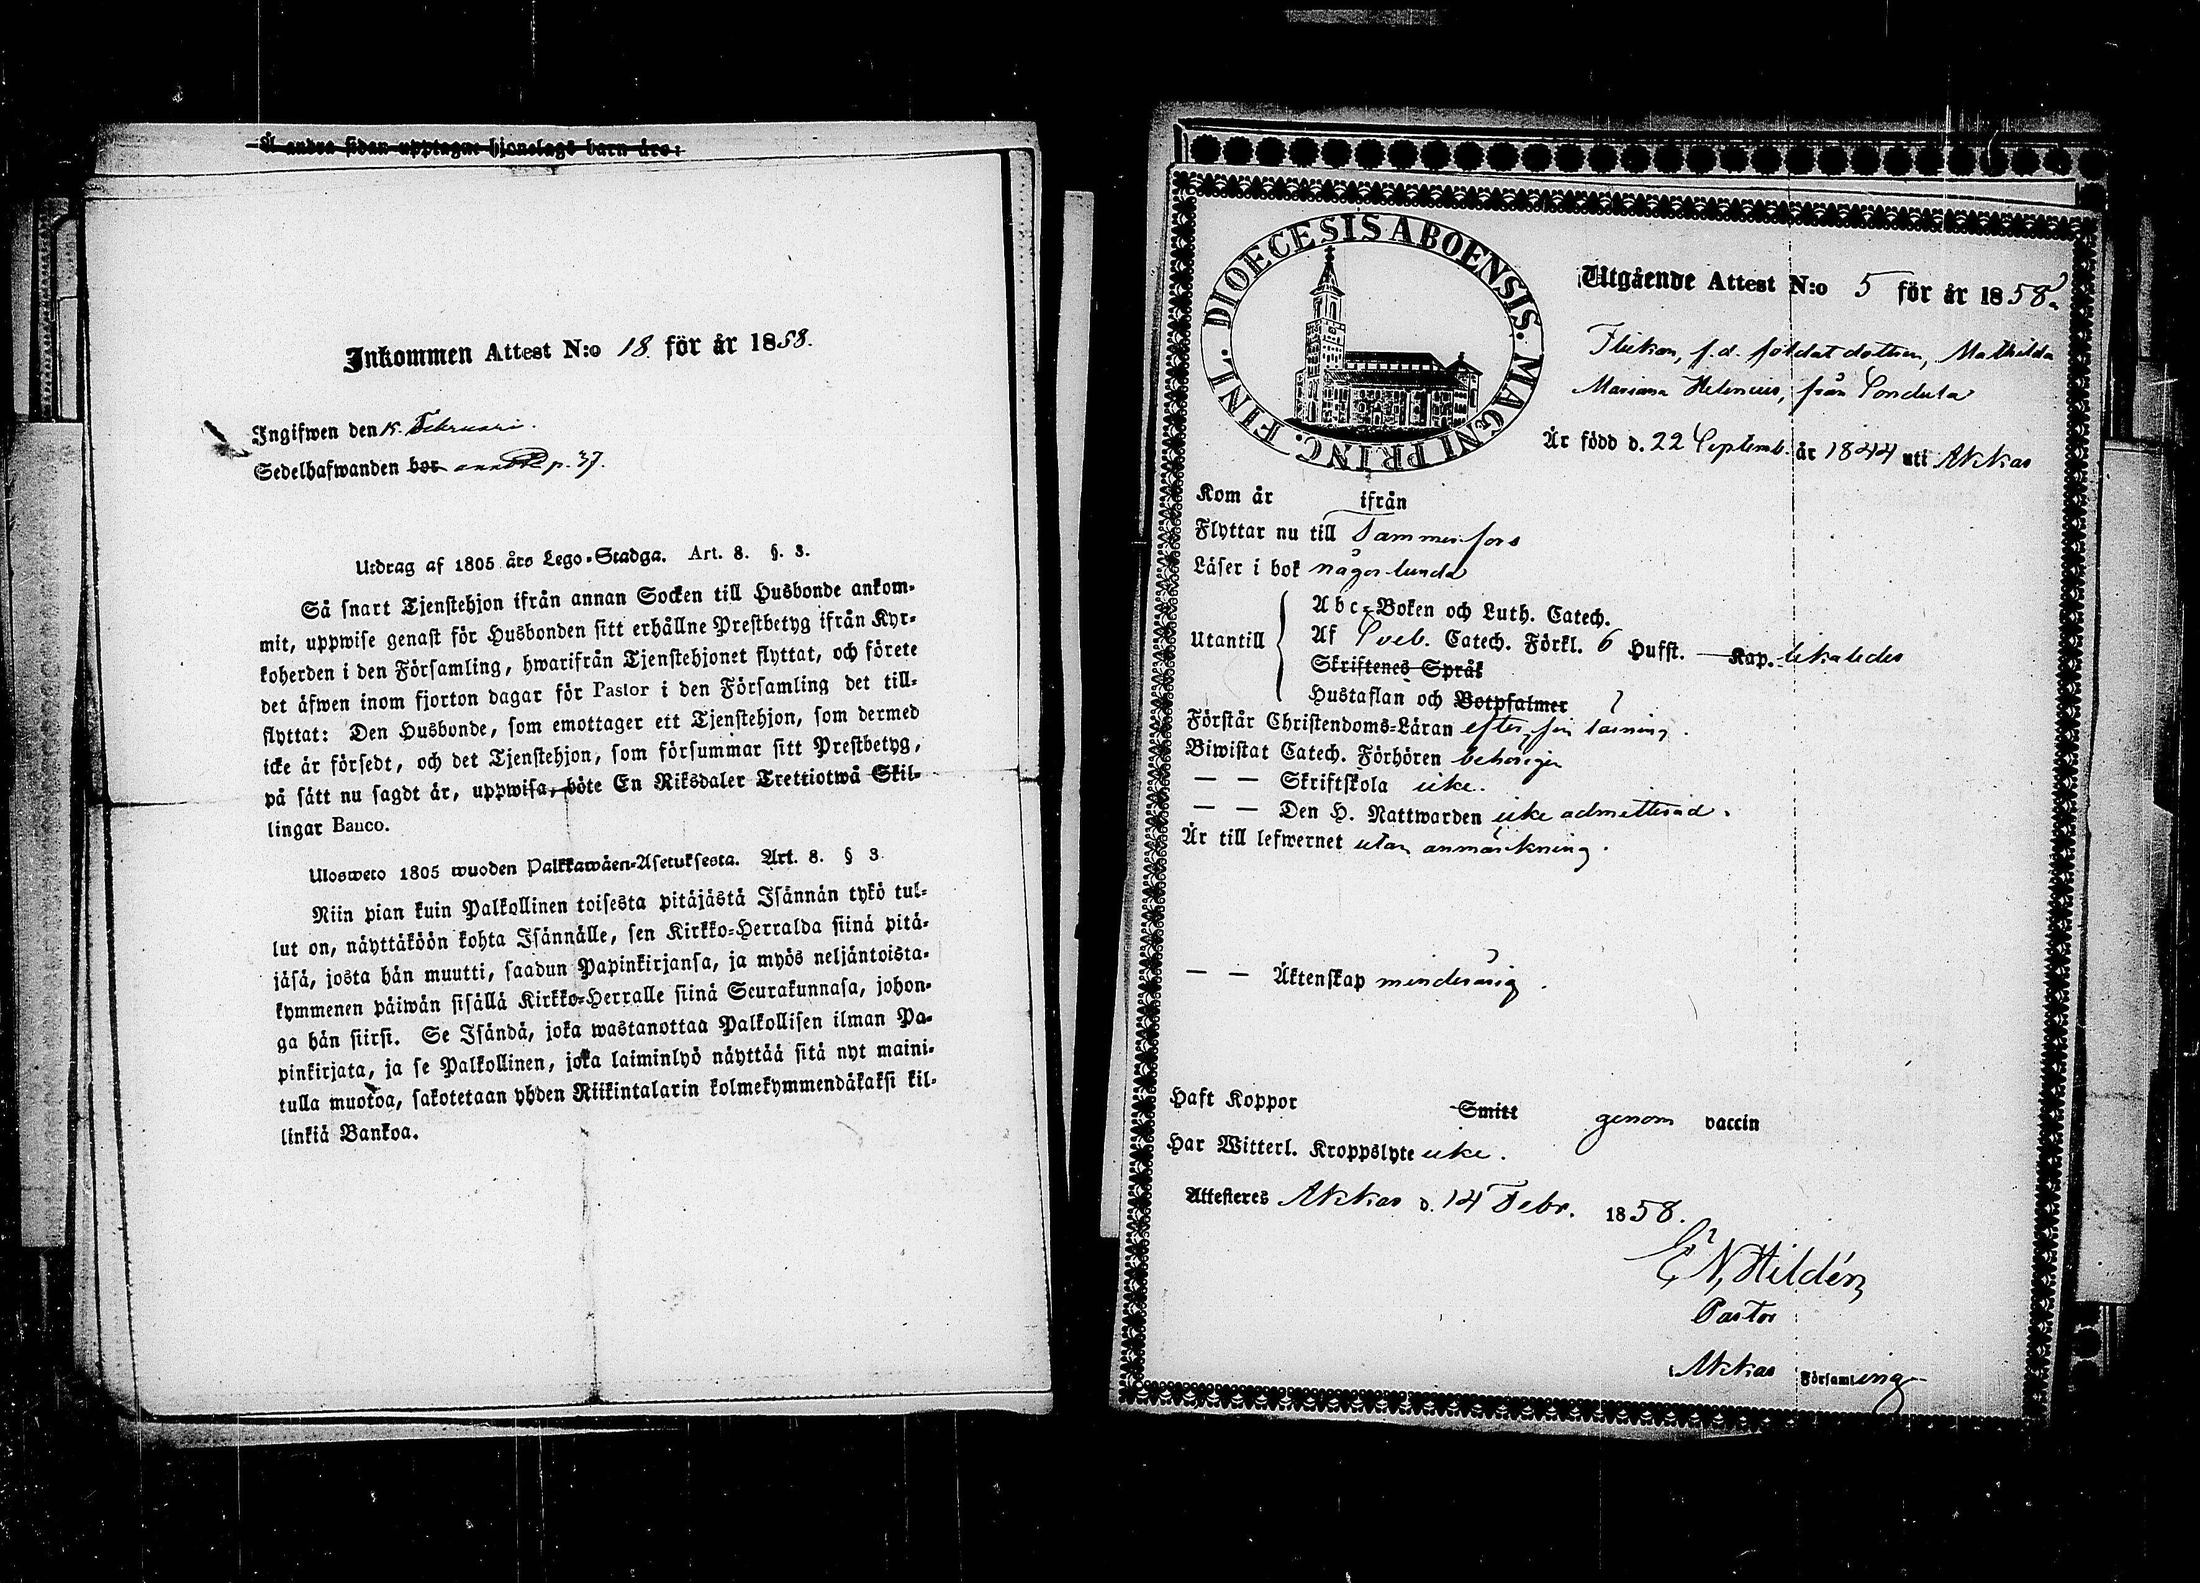 Å andra sidan upptagne hjonelags barn äro:
Inkommen Attest N:o 18. för år 1858.
Ingifwen den 15. Februari.
Sedelhafwanden bor p. 37.
Utdrag af 1805 års Lego-Stadga. Art. 8. §. 3.
Så snart Tjenstehjon ifrån annan Socken till Husbonde ankom-
mit, uppwise genast för Husbonden sitt erhållne Prestbetyg ifrån Kyr-
koherden i den Församling, hwarifrån Tjenstehjonet flyttat, och förete
det äfwen inom fjorton dagar för Pastor i den Församling det till-
flyttat: Den Husbonde, som emottager ett Tjenstehjon, som dermed
icke är försedt, och det Tjenstehjon, som försummar sitt Prestbetyg,
på sätt nu sagdt är, uppwisa, böte En Riksdaler Trettiotwå Skil-
lingar Banco.
Ulosweto 1805 wuoden Palkkawäen-Asetuksesta. Art. 8. § 3.
Niin pian kuin Palkollinen toisesta pitäjästä Isännän tykö tul-
lut on, näyttäköön kohta Isännälle, sen Kirkko-Herralda siinä pitä-
jäsä, josta hän muutti, saadun Papinkirjansa, ja myös neljäntoista-
kymmenen päiwän sisällä Kirkko-Herralle siinä Seurakunnasa, johon-
ga hän siirsi. Se Isändä, joka wastanottaa Palkollisen ilman Pa-
pinkirjata, ja se Palkollinen, joka laiminlyö näyttää sitä nyt maini-
tulla muotoa, sakotetaan yhden Riikintalarin kolmekymmendäkaksi kil-
linkiä Bankoa.
DIOECESIS ABOENSIS. MAGNI PRINC. FINL.
Utgående Attest N:o 5 för år 1858.
Flickan, f.d. soldat dottren, Mathilda
Mariana Helenius, från Sondula
Är född d. 22 Septemb. år 1844 uti Akkas
Kom år ifrån
Flyttar nu till Tammerfors
Läser i bok någorlunda
Utantill
Abc-Boken och Luth. Catech.
Af Sveb. Catech. Förkl. 6 Hufst. Kap. likaledes
Skriftenes Språk
Hustaflan och Botpsalmer
Förstår Christendoms-Läran efter sin läsning.
Biwistat Catech. Förhören behörigen
— — Skriftskola icke.
— — Den H. Nattwarden icke admitterad.
Är till lefwernet utan anmärkning.
— — Äktenskap minderårig.
Haft Koppor Smitt genom vaccin
Har Witterl. Kroppslyte icke.
Attesteres Akkas d. 14 Febr. 1858.
E N, Hildén
Pastor
Akkas Församling